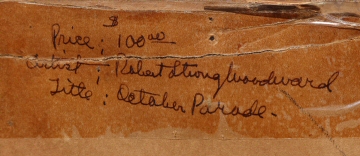 Price : $100.00
Artist : Robert Strong Woodward
Title : October Parade.